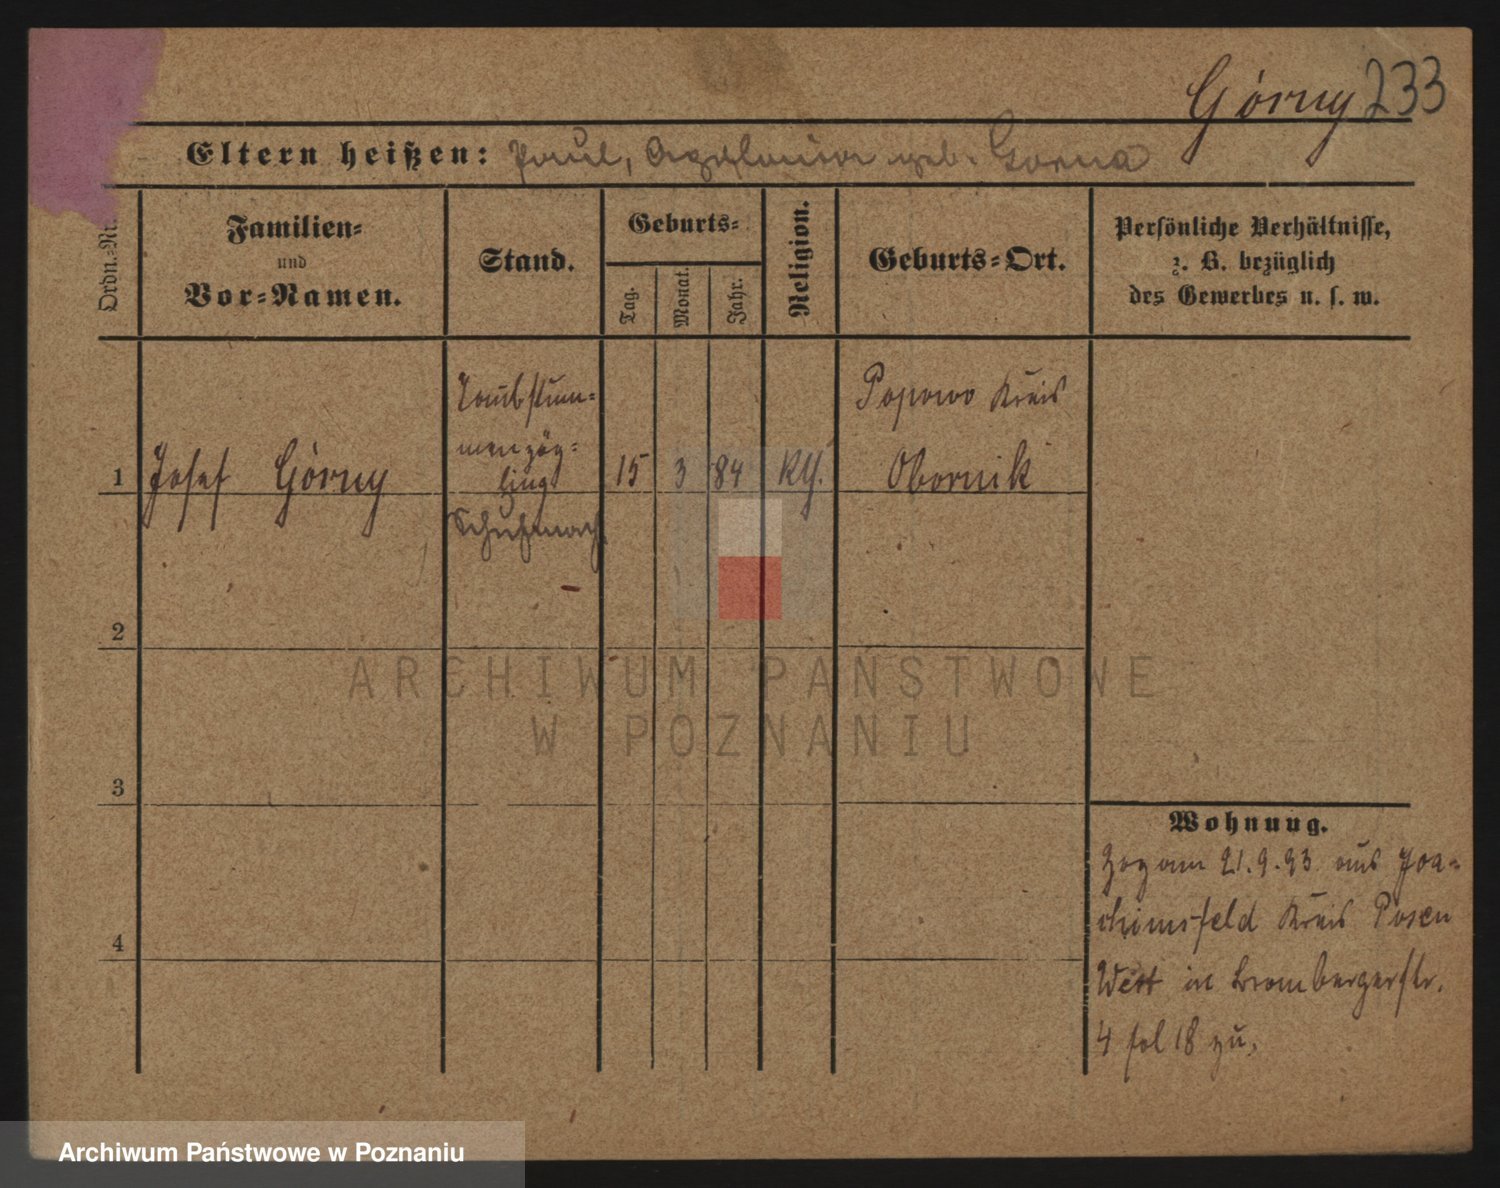 Górny 233
Eltern heißen: Paul, Apolonia geb. Gorna
Ordn.-Nr.
Familien-
und
Vor-Namen.
Stand.
Geburts-
Tag.
Monat.
Jahr.
Religion.
Geburts-Ort.
Persönliche Verhältnisse,
z. B. bezüglich
des Gewerbes u. s. w.
1
Josef Górny
Taubstum-
menzög-
ling
Schuhmach
15
3
84
Kth.
Popowo Kreis
Obornik
2
3
4
Wohnung.
Zog am 21.9.93 aus Joa-
chimsfeld Kreis Posen
West in Brombergerstr.
4 fol 18 zu.
ARCHIWUM PAŃSTWOWE
W POZNANIU
Archiwum Państwowe w Poznaniu